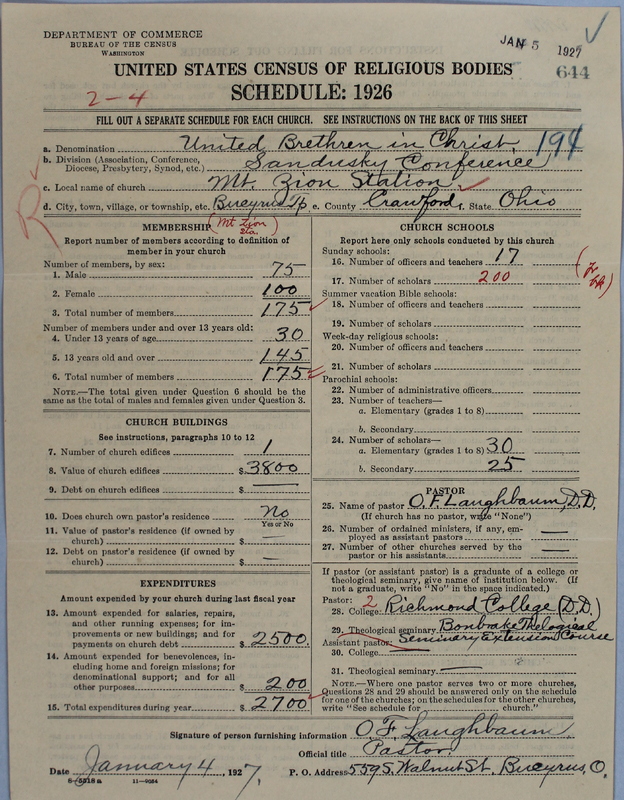 DEPARTMENT OF COMMERCE
BUREAU OF THE CENSUS
WASHINGTON
JAN 5 1927
644
UNITED STATES CENSUS OF RELIGIOUS BODIES
2-4
SCHEDULE: 1926
FILL OUT A SEPARATE SCHEDULE FOR EACH CHURCH. SEE INSTRUCTIONS ON THE BACK OF THIS SHEET
a. Denomination United Brethren in Christ 194
b. Division (Association, Conference, Diocese, Presbytery, Synod, etc.) Sandusky Conference
c. Local name of church Mt. Zion Station
d. City, town, village, or township, etc. Bucyrus Tp e. County Crawford f. State Ohio
R
(Mt Zion Sta.)
MEMBERSHIP
Report number of members according to definition of
member in your church
Number of members, by sex:
1. Male 75
2. Female 100
3. Total number of members 175
Number of members under and over 13 years old:
4. Under 13 years of age 30
5. 13 years old and over 145
6. Total number of members 175
NOTE.—The total given under Question 6 should be
same as the total of males and females given under Question 3.
CHURCH BUILDINGS
See instructions, paragraphs 10 to 12
7. Number of church edifices 1
8. Value of church edifices $ 3800
9. Debt on church edifices $ —
10. Does church own pastor's residence No
Yes or No
11. Value of pastor's residence (if owned by
church) $ —
12. Debt on pastor's residence (if owned by
church) $ —
EXPENDITURES
Amount expended by your church during last fiscal year
13. Amount expended for salaries, repairs,
and other running expenses; for im-
provements or new buildings; and for
payments on church debt $ 2500
14. Amount expended for benevolences, in-
cluding home and foreign missions; for
denominational support; and for all
other purposes $ 200
15. Total expenditures during year $ 2700
CHURCH SCHOOLS
Report here only schools conducted by this church
Sunday schools:
16. Number of officers and teachers 17
17. Number of scholars 200
Summer vacation Bible schools:
18. Number of officers and teachers
19. Number of scholars
Week-day religious schools:
20. Number of officers and teachers
21. Number of scholars
Parochial schools:
22. Number of administrative officers
23. Number of teachers—
a. Elementary (grades 1 to 8)
b. Secondary
24. Number of scholars—
a. Elementary (grades 1 to 8) 30
b. Secondary 25
PASTOR
25. Name of pastor O. F. Laughbaum, D.D.
(If church has no pastor, write "None")
26. Number of ordained ministers, if any, em-
ployed as assistant pastors —
27. Number of other churches served by the
pastor or his assistants —
If pastor (or assistant pastor) is a graduate of a college or
theological seminary, give name of institution below. (If
not a graduate, write "No" in the space indicated.)
Pastor: 2
28. College Richmond College (D.D.)
29. Theological seminary Bonbrake Theological
Assistant pastor: Seminary Extension Course
30. College
31. Theological seminary —
NOTE.—Where one pastor serves two or more churches,
Questions 28 and 29 should be answered only on the schedule
for one of the churches; on the schedules for the other churches,
write "See schedule for church."
Signature of person furnishing information O. F. Laughbaum
Official title Pastor.
Date January 4, 1927. P. O. Address 559 S. Walnut St. Bucyrus, O.
8-5218a 11-9054